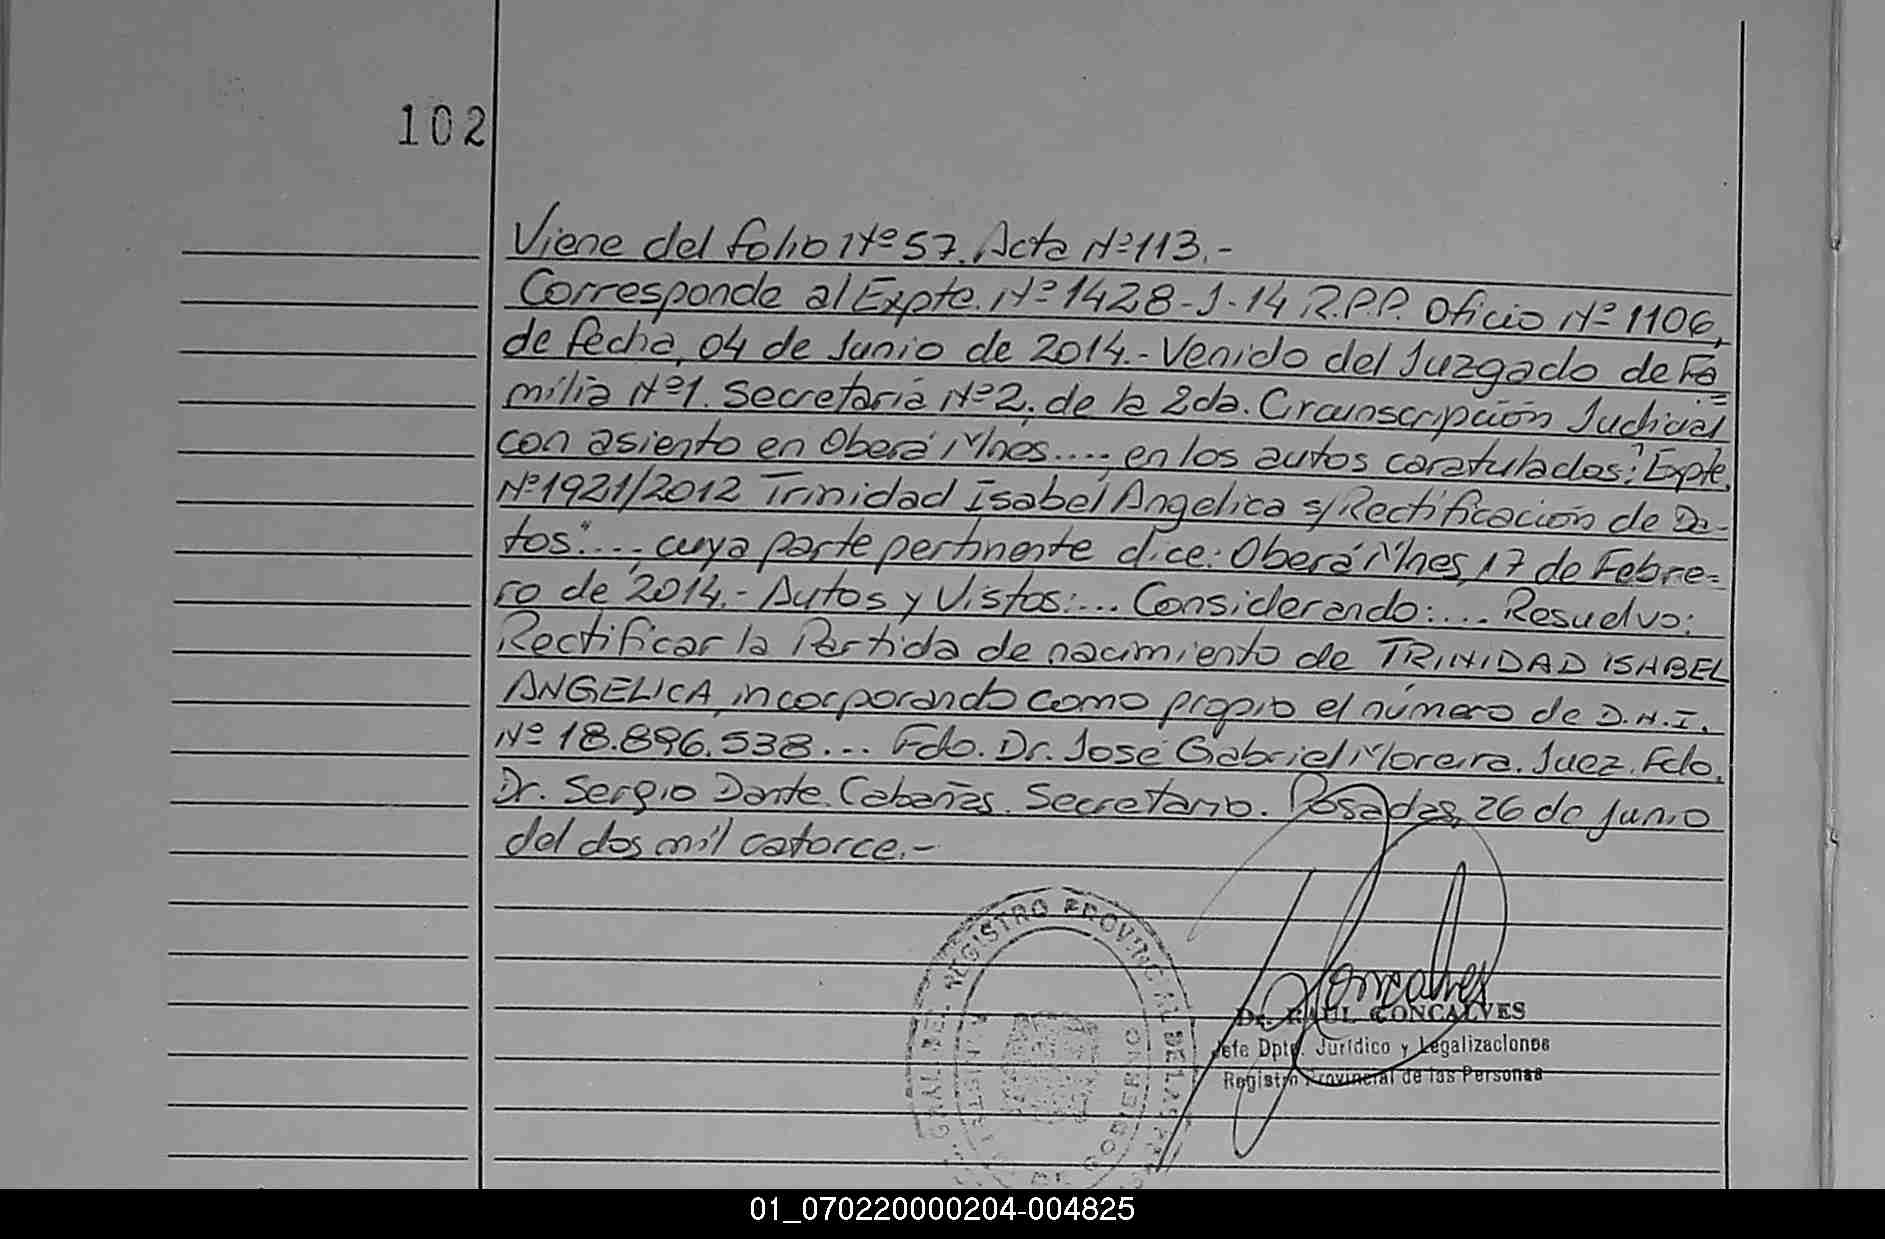 102
Viene del folio Nº 57. Acta Nº 113.-
Corresponde al Expte. Nº 1428-J-14 R.P.P. Oficio Nº 1106,
de fecha, 04 de Junio de 2014.- Venido del Juzgado de Fa=
milia Nº1. Secretaría Nº2, de la 2da. Circunscripción Judicial
con asiento en Oberá Mnes...., en los autos caratulados: "Expte.
Nº 1921/2012 Trinidad Isabel Angelica s/Rectificación de Da-
tos"...., cuya parte pertinente dice: Oberá Mnes, 17 de Febre=
ro de 2014.- Autos y Vistos:... Considerando:.... Resuelvo:
Rectificar la Partida de nacimiento de TRINIDAD ISABEL
ANGELICA, incorporando como propio el número de D.N.I.
Nº 18.896.538... Fdo. Dr. José Gabriel Moreira. Juez. Fdo.
Dr. Sergio Dante Cabañas. Secretario. Posadas, 26 de junio
del dos mil catorce.-
REGISTRO PROVINCIAL DE LAS
GOBIERNO
Goncalves
Dr. RAUL GONCALVES
Jefe Dpto. Jurídico y Legalizaciones
Registro Provincial de las Personas
01_070220000204-004825